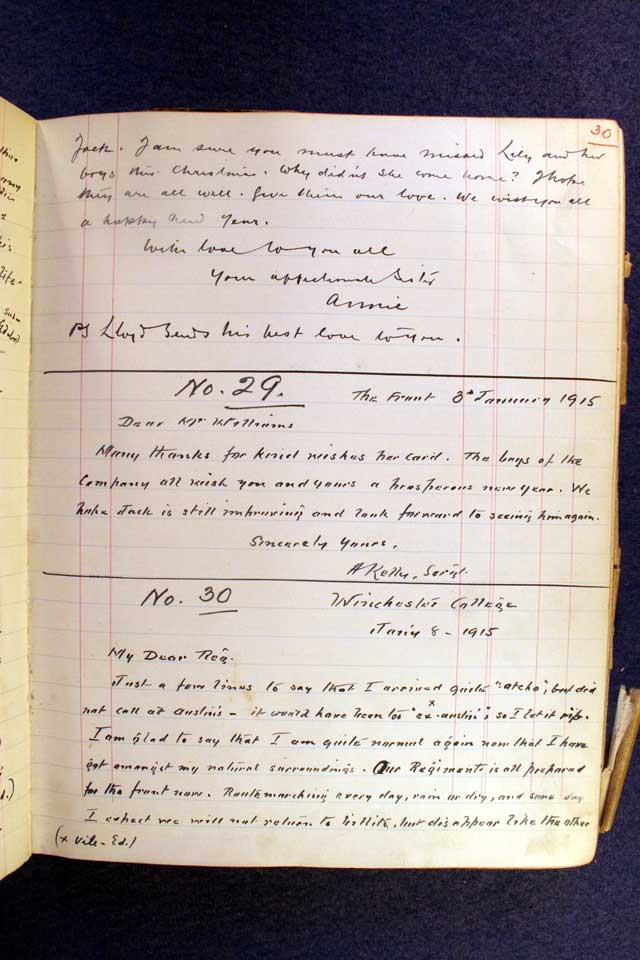 30
Jack. I am sure you must have missed Lily and her
boys this Christmas. Why didn't she come home? I hope
they are all well. Give them our love. We wish you all
a happy New Year.
With love to you all
Your affectionate Sister
Annie
PS Lloyd sends his best love to you.
No. 29. The Front 3rd January 1915
Dear Mr Williams
Many thanks for kind wishes per card. The boys of the
Company all wish you and yours a prosperous new year. We
hope Jack is still improving and look forward to seeing him again.
Sincerely Yours,
A Kelly, Sergt.
No. 30 Winchester College
Jan'y 8 - 1915
My Dear Reg.
Just a few lines to say that I arrived quite "atcha", but did
not call at Austin's - it would have been too "ex x-austin's" so I let it rip.
I am glad to say that I am quite normal again now that I have
got amongst my natural surroundings. Our Regiment is all prepared
for the front now. Routemarching every day, rain or dry, and some day
I expect we will not return to billits, but disappear like the other
(x Vile - Ed.)